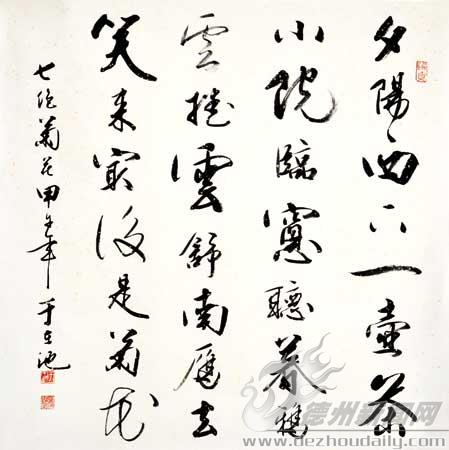 夕陽西下一壺茶
小院臨窻聽暮鴉
雲捲雲舒南雁去
笑来最後是菊花
七绝菊花甲午年于池
德州新闻网
www.dezhoudaily.com